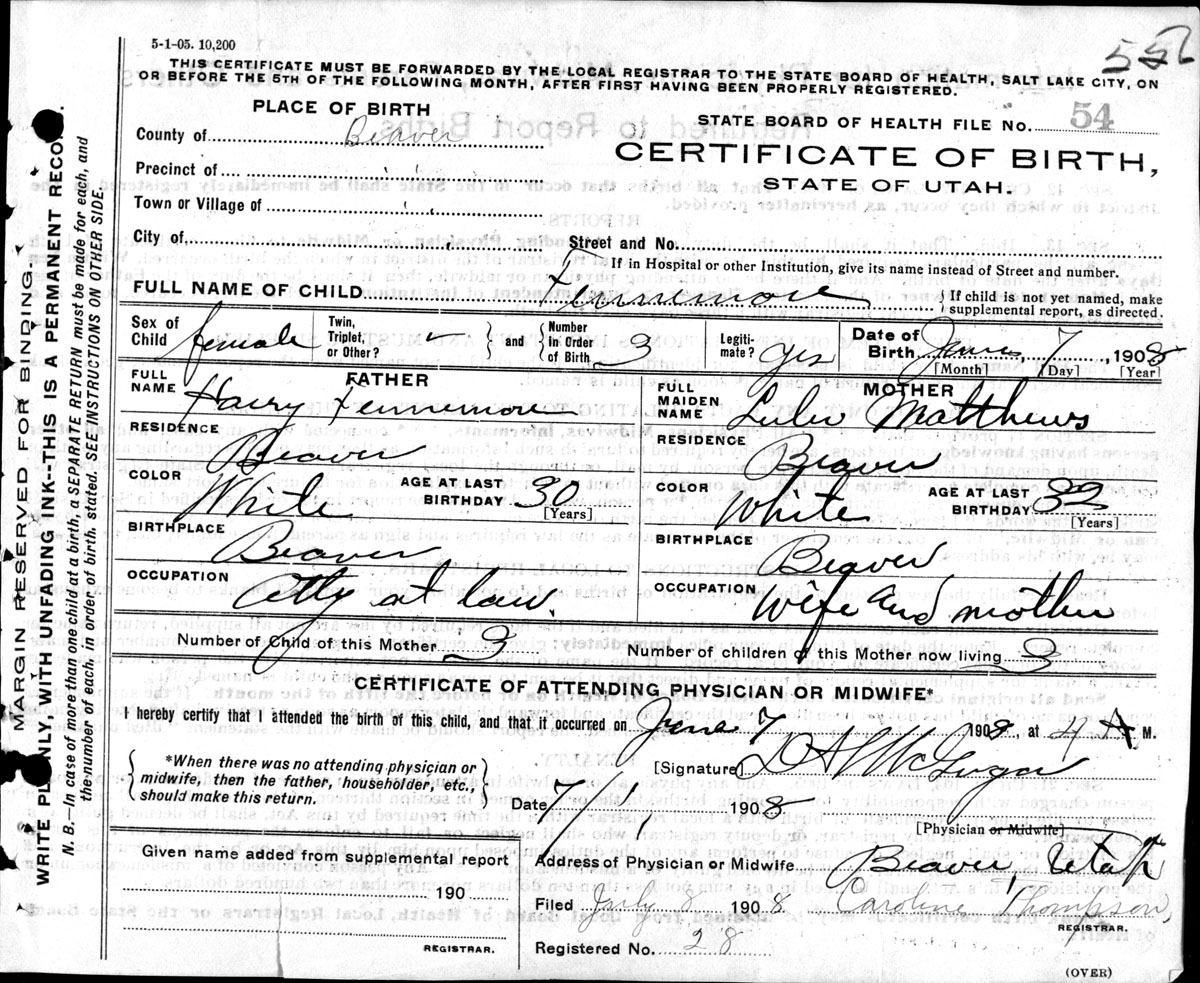 5-1-05. 10,200
552
THIS CERTIFICATE MUST BE FORWARDED BY THE LOCAL REGISTRAR TO THE STATE BOARD OF HEALTH, SALT LAKE CITY, ON
OR BEFORE THE 5TH OF THE FOLLOWING MONTH, AFTER FIRST HAVING BEEN PROPERLY REGISTERED.
PLACE OF BIRTH
County of Beaver
Precinct of " "
Town or Village of " "
City of " "
STATE BOARD OF HEALTH FILE No. 54
CERTIFICATE OF BIRTH,
STATE OF UTAH.
Street and No.
If in Hospital or other Institution, give its name instead of Street and number.
FULL NAME OF CHILD Fennemore { If child is not yet named, make
supplemental report, as directed.
Sex of Child female
Twin, Triplet, or Other?
and
Number in Order of Birth 3
Legitimate? yes
Date of Birth June 7, 1908
[Month] [Day] [Year]
FATHER
FULL NAME Harry Fennemore
RESIDENCE Beaver
COLOR White AGE AT LAST BIRTHDAY 30
[Years]
BIRTHPLACE Beaver
OCCUPATION Atty at law.
MOTHER
FULL MAIDEN NAME Lulu Matthews
RESIDENCE Beaver
COLOR White AGE AT LAST BIRTHDAY
[Years]
BIRTHPLACE Beaver
OCCUPATION Wife and mother
Number of Child of this Mother 3 Number of children of this Mother now living 3
CERTIFICATE OF ATTENDING PHYSICIAN OR MIDWIFE*
I hereby certify that I attended the birth of this child, and that it occurred on June 7 1908, at 4 A M.
{ *When there was no attending physician or
midwife, then the father, householder, etc.,
should make this return. }
[Signature]
Date 7/1 1908
[Physician or Midwife]
Given name added from supplemental report
190
REGISTRAR.
Address of Physician or Midwife Beaver, Utah
Filed July 8 1908 Caroline Thompson,
REGISTRAR.
Registered No. 28
(OVER)
MARGIN RESERVED FOR BINDING.
WRITE PLAINLY, WITH UNFADING INK--THIS IS A PERMANENT RECORD.
N. B.—In case of more than one child at a birth, a SEPARATE RETURN must be made for each, and
the number of each, in order of birth, stated. SEE INSTRUCTIONS ON OTHER SIDE.